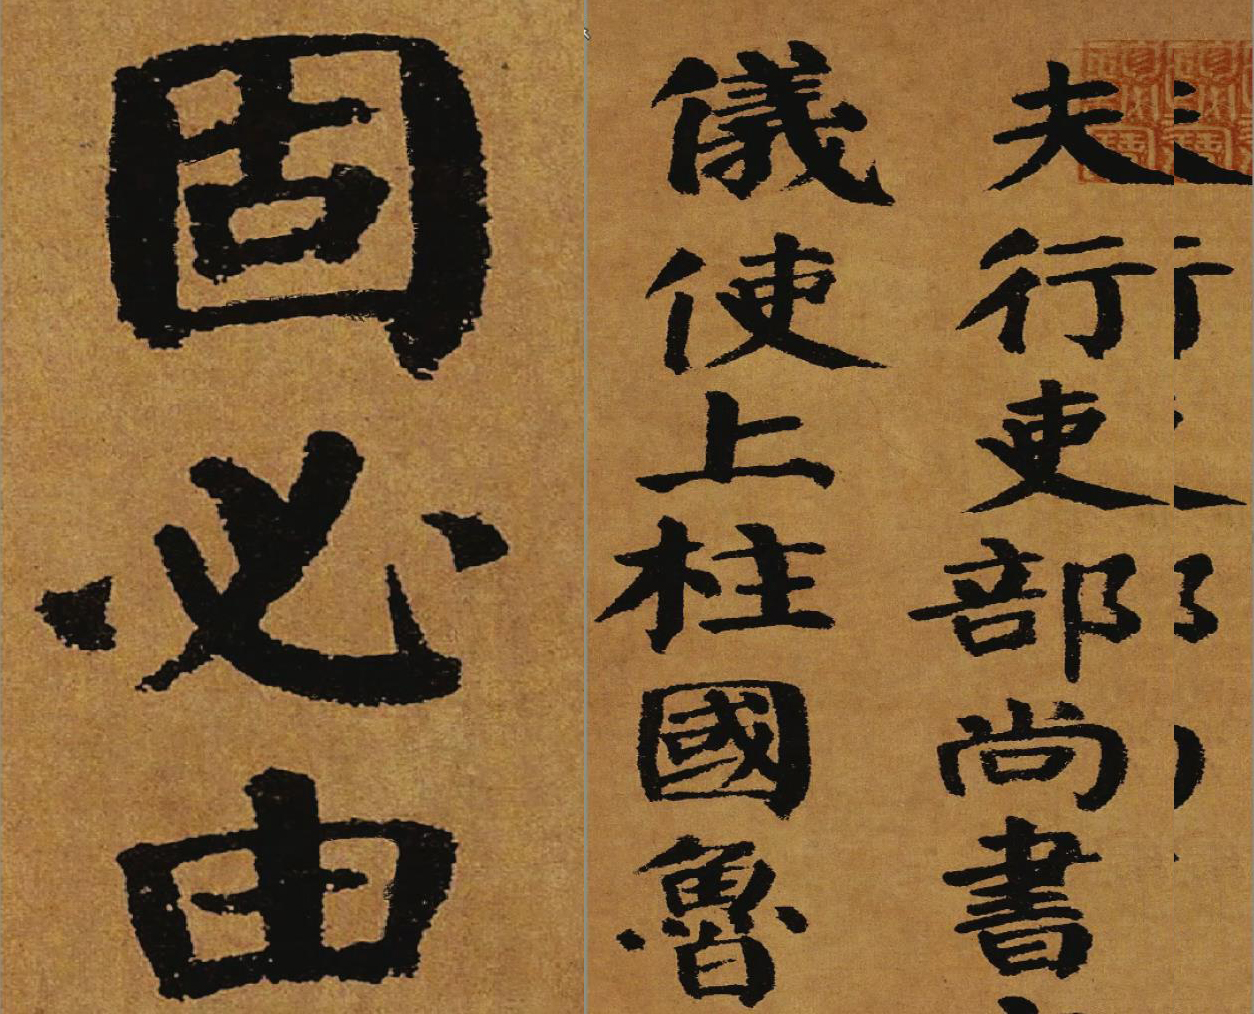 夫行吏部尚書
儀使上柱國魯
固必由